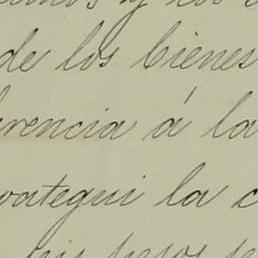 y los
de los bienes
erencia á la
oategui la c
pesos